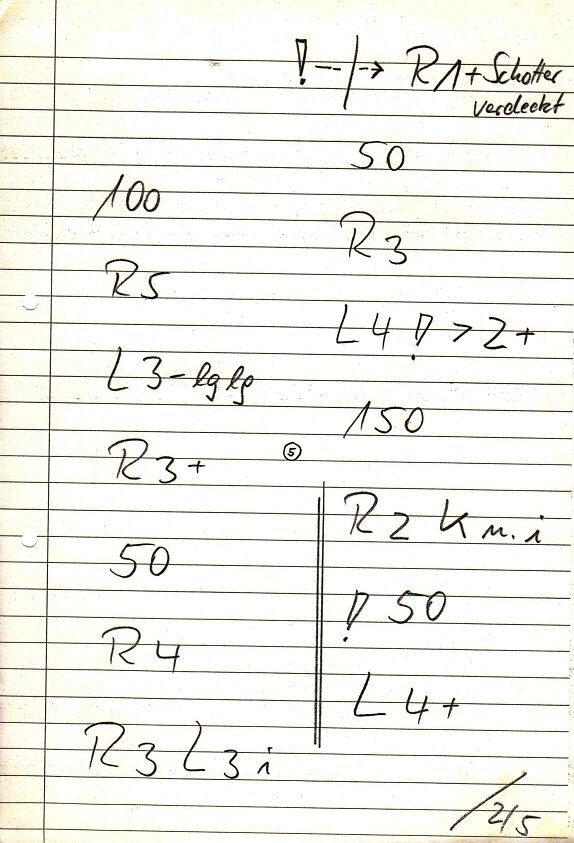 100
R5
L3-lglg
R3+
50
R4
R3 L3 i
! --|--> R1 + Schotter
verdeckt
50
R3
L4 ! > 2+
150
5
R2 K n. i
! 50
L4+
/2/5